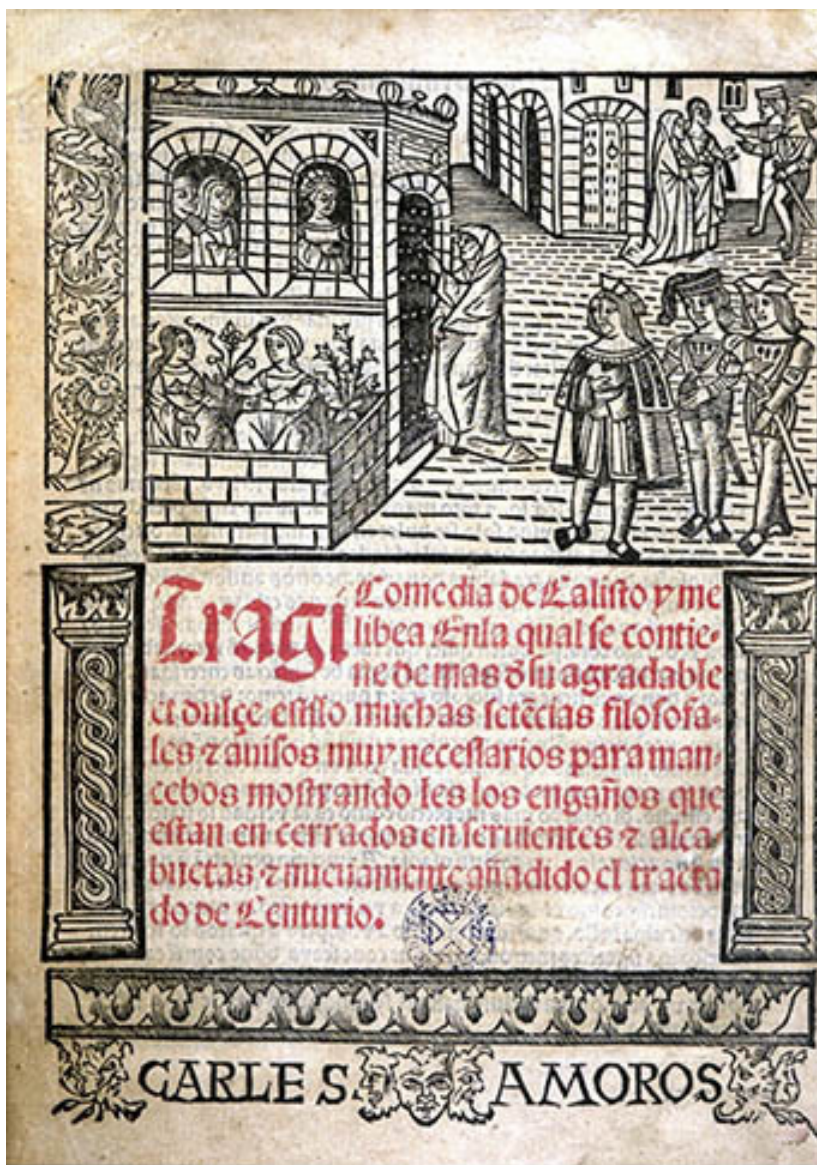 Tragi Comedia de Calisto y me
libea Enla qual se contie-
ne de mas d̃ su agradable
et dulçe estilo muchas setẽcias filosofa-
les ⁊ auisos muy necessarios para man-
cebos mostrando les los engaños que
estan en cerrados en seruientes ⁊ alca-
huetas ⁊ nueuamente añadido el tracta
do de Centurio.
CARLES AMOROS